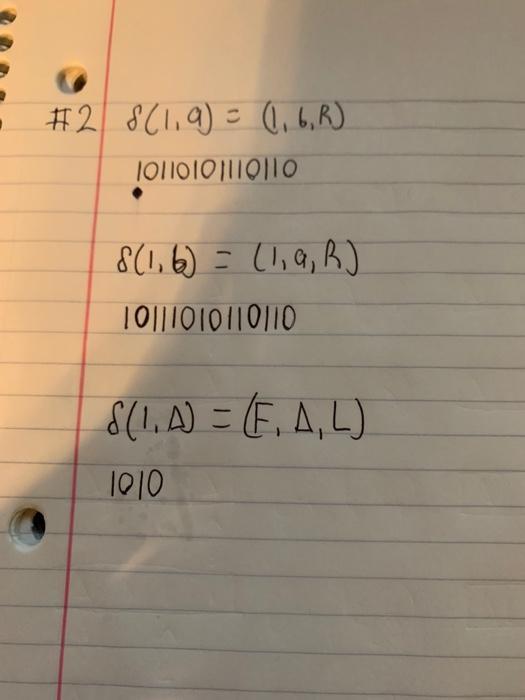 #2 δ(1,a) = (1,b,R)
10110101110110
δ(1,b) = (1,a,R)
10111010110110
δ(1,Δ) = (F, Δ, L)
1010